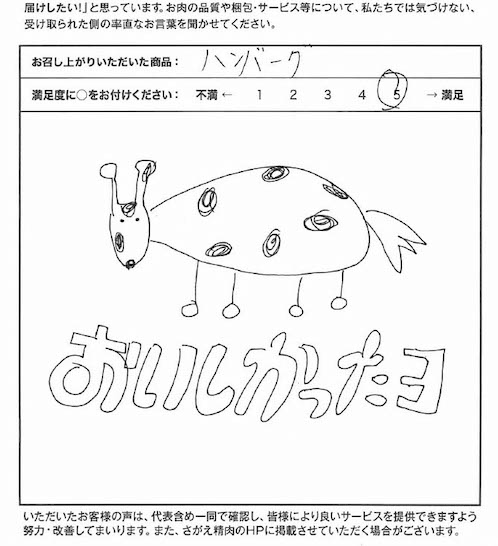 届けしたい!」と思っています。お肉の品質や梱包・サービス等について、私たちでは気づけない、
受け取られた側の率直なお言葉を聞かせてください。
お召し上がりいただいた商品: ハンバーグ
満足度に○をお付けください: 不満 ← 1 2 3 4 5 → 満足
おいしかったヨ
いただいたお客様の声は、代表含め一同で確認し、皆様により良いサービスを提供できますよう
努力・改善してまいります。また、さがえ精肉のHPに掲載させていただく場合がございます。